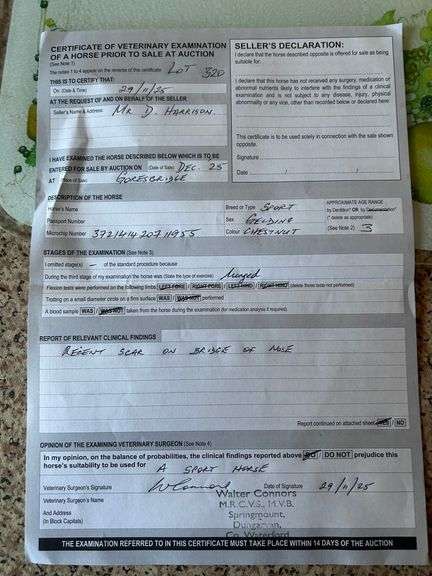 CERTIFICATE OF VETERINARY EXAMINATION
OF A HORSE PRIOR TO SALE AT AUCTION
(See Note 1)
The notes 1 to 4 appear on the reverse of this certificate LOT 320
THIS IS TO CERTIFY THAT:
On: (Date & Time) 29/11/25
AT THE REQUEST OF AND ON BEHALF OF THE SELLER
Seller's Name & Address MR D. HARRISON.
I HAVE EXAMINED THE HORSE DESCRIBED BELOW WHICH IS TO BE
ENTERED FOR SALE BY AUCTION ON (Date of Sale) DEC. 25
AT (Place of Sale) GORESBRIDGE
SELLER'S DECLARATION:
I declare that the horse described opposite is offered for sale as being
suitable for:
I declare that this horse has not received any surgery, medication or
abnormal nutrients likely to interfere with the findings of a clinical
examination and is not subject to any disease, injury, physical
abnormality or any vice, other than recorded below or declared here
This certificate to be used solely in connection with the sale shown
opposite.
Signature
Date
DESCRIPTION OF THE HORSE
Horse's Name
Passport Number
Microchip Number 372141420711955
Breed or Type SPORT
Sex GELDING
Colour CHESTNUT
APPROXIMATE AGE RANGE
by Dentition* OR by Documentation*
(* delete as appropriate)
(See Note 2) 3
STAGES OF THE EXAMINATION (See Note 3)
I omitted stage(s) – of the standard procedure because
During the third stage of my examination the horse was (State the type of exercise) lunged
Flexion tests were performed on the following limbs LEFT FORE RIGHT FORE LEFT HIND RIGHT HIND (delete those tests not performed)
Trotting on a small diameter circle on a firm surface WAS WAS NOT performed
A blood sample WAS / WAS NOT taken from the horse during the examination (for medication analysis if required)
REPORT OF RELEVANT CLINICAL FINDINGS
RECENT SCAR ON BRIDGE OF NOSE
Report continued on attached sheet YES / NO
OPINION OF THE EXAMINING VETERINARY SURGEON (See Note 4)
In my opinion, on the balance of probabilities, the clinical findings reported above DO / DO NOT prejudice this
horse's suitability to be used for A SPORT HORSE
Veterinary Surgeon's Signature W Connors Date of Signature 29/11/25
Veterinary Surgeon's Name
And Address
(In Block Capitals)
Walter Connors
M.R.C.V.S., M.V.B.
Springmount,
Dungarvan,
Co. Waterford
THE EXAMINATION REFERRED TO IN THIS CERTIFICATE MUST TAKE PLACE WITHIN 14 DAYS OF THE AUCTION